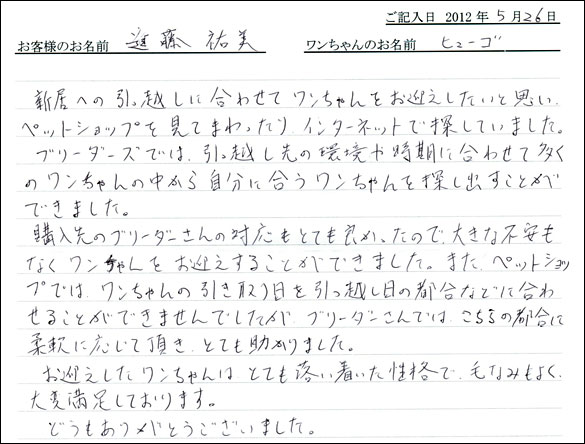 ご記入日 2012年5月26日
お客様のお名前 進藤 祐美 ワンちゃんのお名前 ヒューゴ
新居への引っ越しに合わせてワンちゃんをお迎えしたいと思い、
ペットショップを見てまわったり、インターネットで探していました。
ブリーダーズでは、引っ越し先の環境や時期に合わせて多く
のワンちゃんの中から自分に合うワンちゃんを探し出すことが
できました。
購入先のブリーダーさんの対応もとても良かったので、大きな不安も
なくワンちゃんをお迎えすることができました。また、ペットショッ
プでは、ワンちゃんの引き取り日を引っ越し日の都合などに合わ
せることができませんでしたが、ブリーダーさんでは、こちらの都合に
柔軟に応じて頂き、とても助かりました。
お迎えしたワンちゃんは、とても落ち着いた性格で、毛なみもよく、
大変満足しております。
どうもありがとうございました。